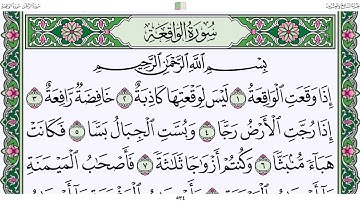 سُورَةُ الوَاقِعَةِ
بِسْمِ اللَّهِ الرَّحْمَٰنِ الرَّحِيمِ
إِذَا وَقَعَتِ الْوَاقِعَةُ ١ لَيْسَ لِوَقْعَتِهَا كَاذِبَةٌ ٢ خَافِضَةٌ رَّافِعَةٌ ٣
إِذَا رُجَّتِ الْأَرْضُ رَجًّا ٤ وَبُسَّتِ الْجِبَالُ بَسًّا ٥ فَكَانَتْ
هَبَاءً مُّنبَثًّا ٦ وَكُنتُمْ أَزْوَاجًا ثَلَاثَةً ٧ فَأَصْحَابُ الْمَيْمَنَةِ
٥٣٤